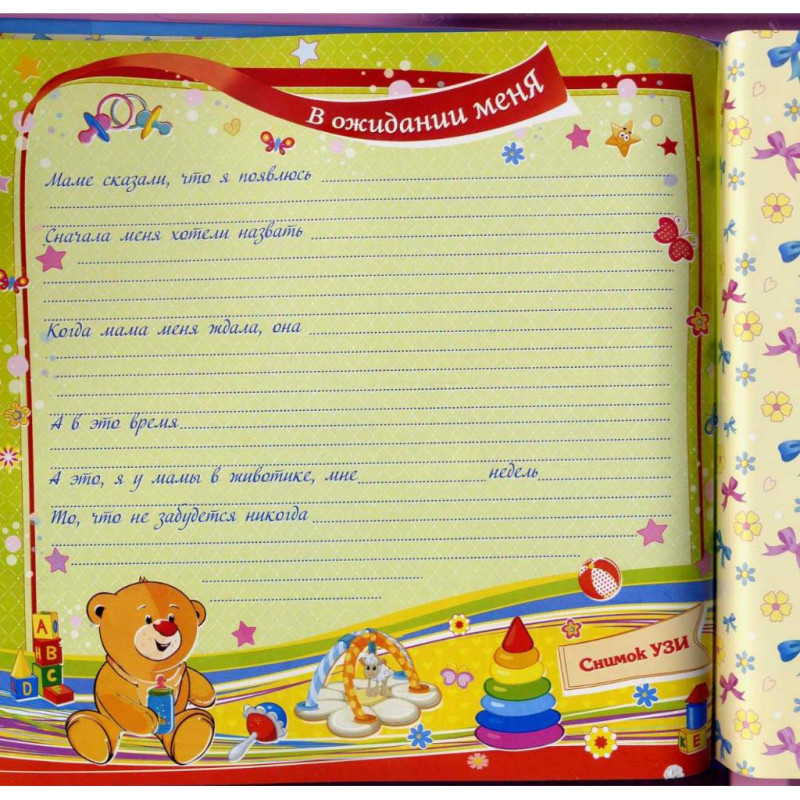 В ожидании меня
Маме сказали, что я появлюсь
Сначала меня хотели назвать
Когда мама меня ждала, она
А в это время
А это, я у мамы в животике, мне недель
То, что не забудется никогда
Снимок УЗИ
A
H B
C
D
K E